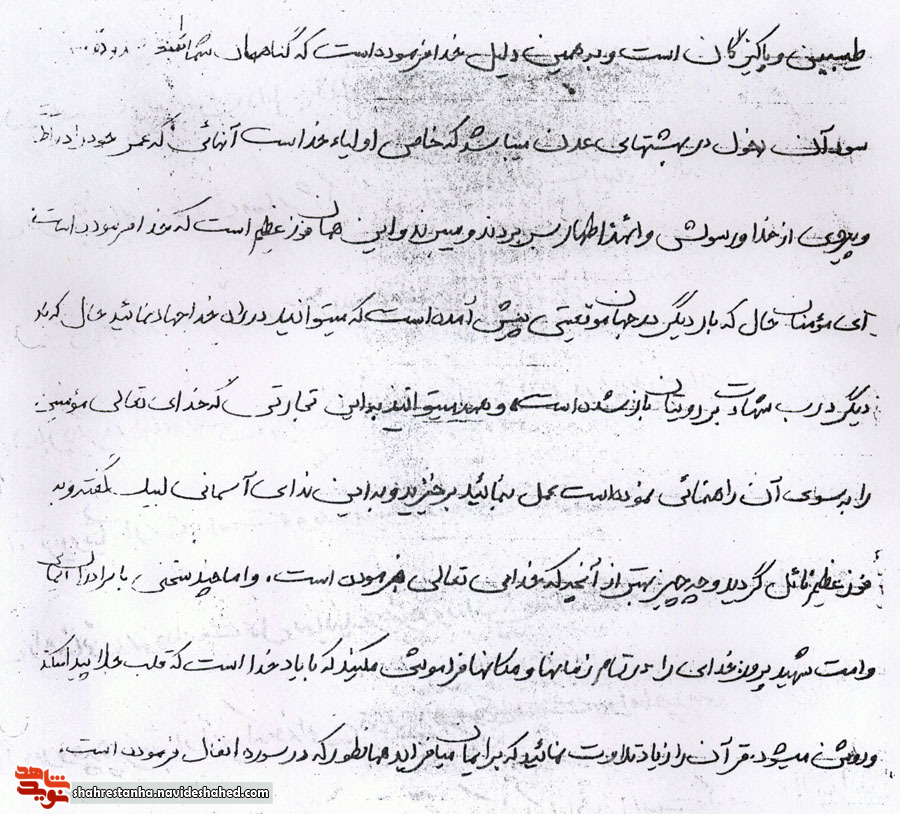 طیبین و پاکیزگان است و به همین دلیل خدا فرموده است که گناهان شما
آن دخول در بهشتهای عدن میباشد که خاص اولیاء خداست آنهائی که عمر خود را در
و پیروی از خدا و رسولش و ائمه اطهار بسر بردند و میبرند و این همان فوز عظیم است که خدا فرموده است
ای مؤمنان حال که بار دیگر در جهان موقعیتی پیش آمده است که میتوانید در راه خدا جهاد نمائید حال که بار
دیگر درب شهادت بر رویتان باز شده است و میتوانید به این تجارتی که خدای تعالی مؤمنین
را بسوی آن راهنمائی نموده است عمل بنمائید برخیزید و به این ندای آسمانی لبیک گفته و به
فوز عظیم نائل گردید و چه چیز بهتر از آنچه که خدای تعالی فرموده است. و اما چند سخنی با برادران ایمانی
و امت شهید پرور خدای را در تمام زمانها و مکانها فراموش مکنید که با یاد خدا است که قلب جلا پیدا میکند
و روشن میشود. قرآن را زیاد تلاوت نمائید که بر ایمان میافزاید همانطور که در سوره انفال فرموده است.
نوید شاهد
shahrestanha.navideshahed.com